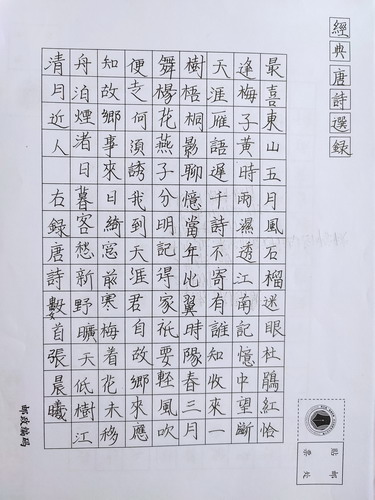 經典唐詩選錄
最喜東山五月風石榴迷眼杜鵑紅恰
逢梅子黃時雨濕透江南記憶中望斷
天涯雁語遲十詩不寄有誰知收來一
樹梧桐影聊憶當年比翼時陽春三月
舞楊花燕子分明記得家祇要輕風吹
便走何須誘我到天涯君自故鄉來應
知故鄉事來日綺窓前寒梅着花未移
舟泊煙渚日暮客愁新野曠天低樹江
清月近人 右錄唐詩數首張晨曦